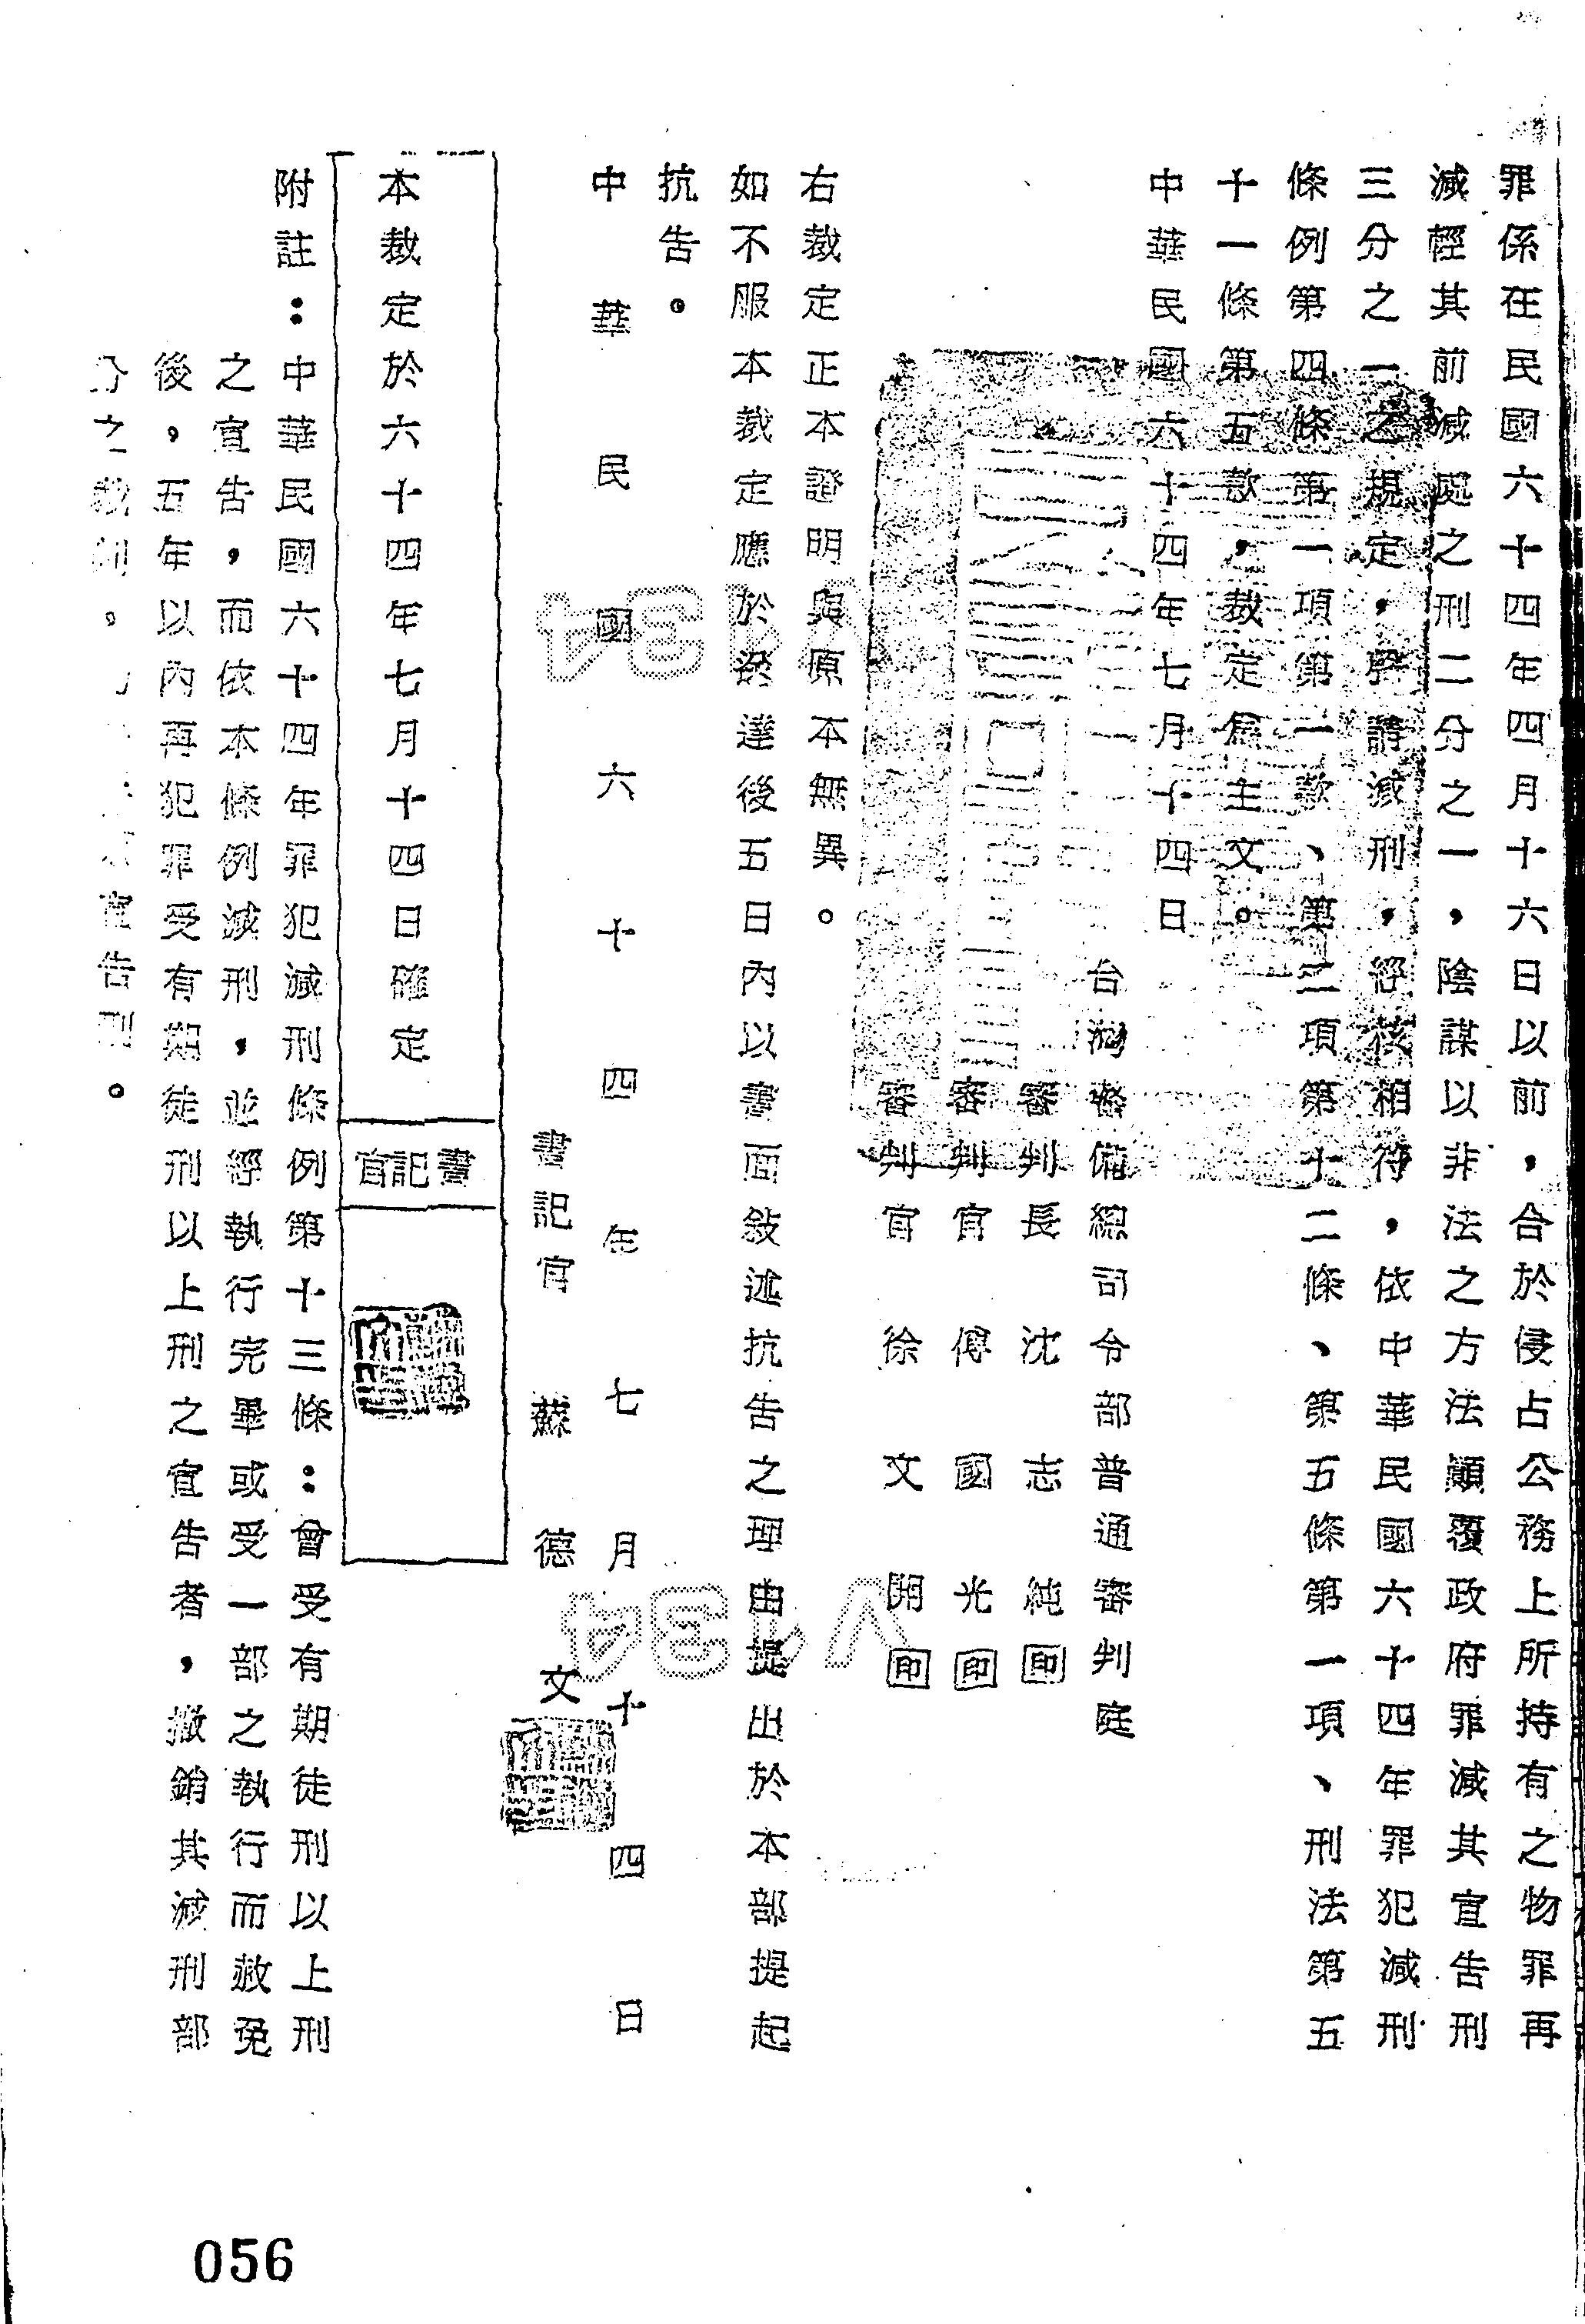 罪係在民國六十四年四月十六日以前，合於侵占公務上所持有之物罪再
減輕其前減處之刑二分之一，陰謀以非法之方法顛覆政府罪減其宣告刑
三分之一之規定，聲請減刑，經核相符，依中華民國六十四年罪犯減刑
條例第四條第一項第一款、第二項第十二條、第五條第一項、刑法第五
十一條第五款，裁定為主文。
中華民國六十四年七月十四日
台灣警備總司令部普通審判庭
審判長　沈志純印
審判官　傅國光印
審判官　徐文開印
右裁定正本證明與原本無異。
如不服本裁定應於送達後五日內以書面敍述抗告之理由提出於本部提起
抗告。
中華民國六十四年七月十四日
書記官　蘇德文
本裁定於六十四年七月十四日確定
書記官
附註：中華民國六十四年罪犯減刑條例第十三條：曾受有期徒刑以上刑
之宣告，而依本條例減刑，並經執行完畢或受一部之執行而赦免
後，五年以內再犯罪受有期徒刑以上刑之宣告者，撤銷其減刑部
分之裁判。宣告刑。
V134
V134
056